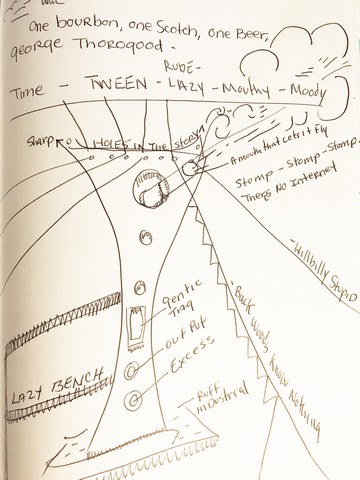 One bourbon, one Scotch, one Beer,
george Thorogood -
RUDE-
Time - TWEEN - LAZY - Mouthy - Moody
Sharp
HOLES IN THE STORY
A mouth that Lets it Fly
Stomp - Stomp - Stomp.
Thers No Internet
Hillbilly Stupid
Back Woods Know Nothing
gentic
Tag
out Put
Excess
LAZY BENCH
Ruff
inDustral